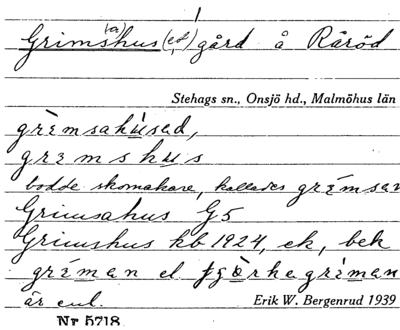 Grimshus (a) (et) gård å Råröd
Stehags sn., Onsjö hd., Malmöhus län
grèmsahùsad,
gremshus
bodde skomakare, kallades grémsan
Grimsahus G5
Grimshus kb 1924, ek, bek
gréman el
är enl. Erik W. Bergenrud 1939
Nr 5718